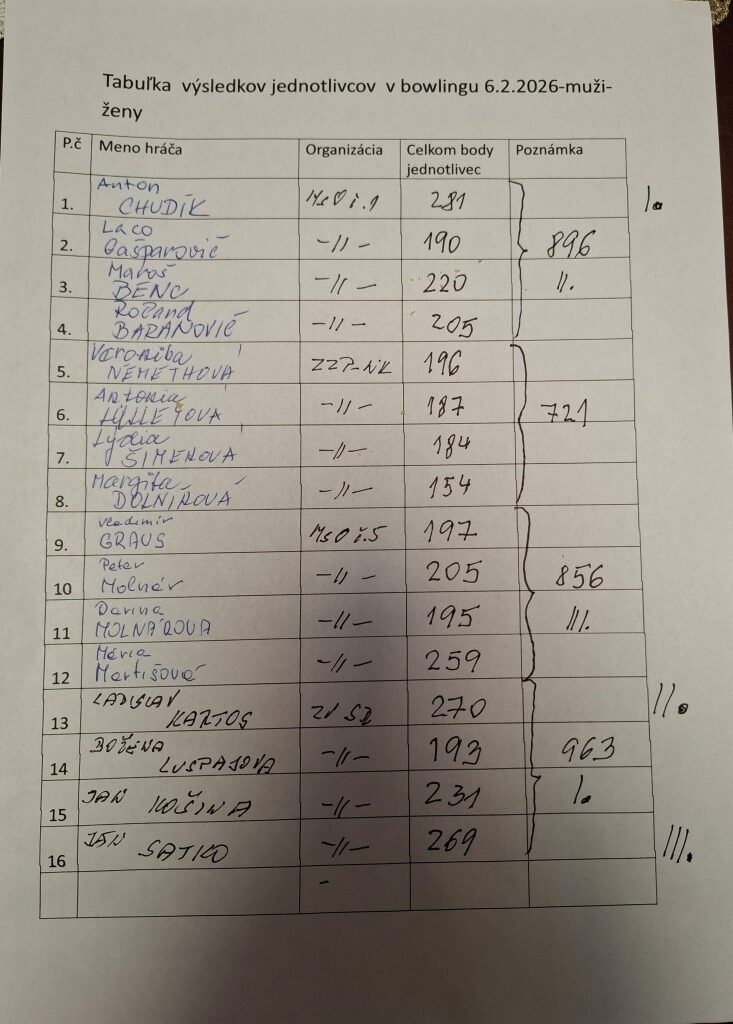 Tabuľka výsledkov jednotlivcov v bowlingu 6.2.2026-muži-
ženy
P.č Meno hráča Organizácia Celkom body Poznámka
jednotlivec
Anton
1. CHUDÍK MsO č.1 281 I.
Laco
2. Gašparovič -//- 190 896
Maroš
3. BENC -//- 220 II.
Roland
4. BARANOVIČ -//- 205
Veronika
5. NEMETHOVÁ ZZP-NK 196
Antonia
6. -//- 187 721
Lýdia
7. ŠIMEKOVÁ -//- 184
Margita
8. -//- 154
Vladimír
9. GRAUS MsO č.5 197
Peter
10 Molnár -//- 205 856
Darina
11 MOLNÁROVA -//- 195 III.
Mária
12 Martišová -//- 259
LADISLAV
13 KARTOS 270 II.
BOŽENA
14 -//- 193 963
JAN
15 KOŠINA -//- 231 I.
JÁN
16 SATKO -//- 269 III.
-